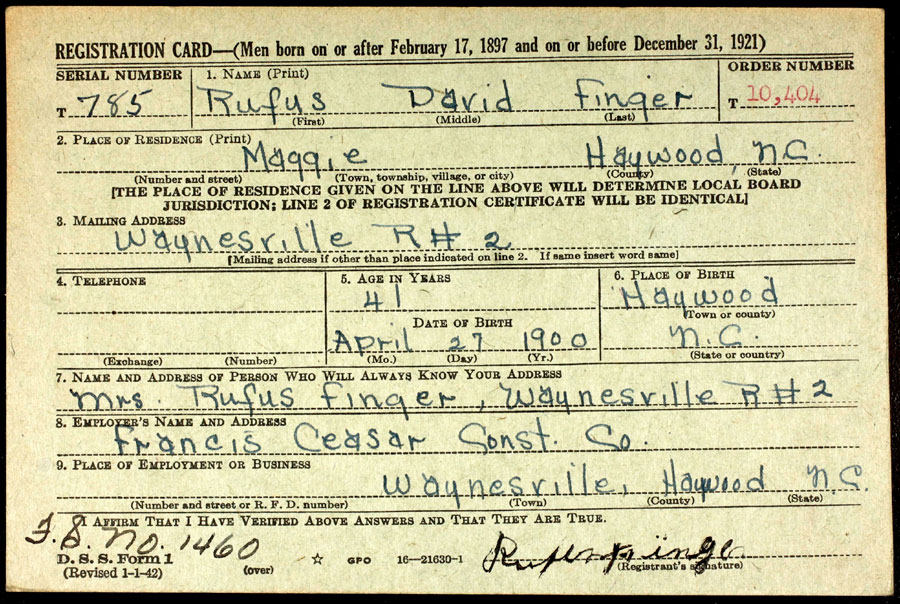 REGISTRATION CARD—(Men born on or after February 17, 1897 and on or before December 31, 1921)
SERIAL NUMBER 1. NAME (Print) ORDER NUMBER
T 785 Rufus David Finger T 10,404
(First) (Middle) (Last)
2. PLACE OF RESIDENCE (Print)
Maggie Haywood, N.C.
(Number and street) (Town, township, village, or city) (County) (State)
[THE PLACE OF RESIDENCE GIVEN ON THE LINE ABOVE WILL DETERMINE LOCAL BOARD
JURISDICTION; LINE 2 OF REGISTRATION CERTIFICATE WILL BE IDENTICAL]
3. MAILING ADDRESS
Waynesville R#2
[Mailing address if other than place indicated on line 2. If same insert word same]
4. TELEPHONE 5. AGE IN YEARS 6. PLACE OF BIRTH
41 Haywood
(Town or county)
DATE OF BIRTH
April 27 1900 N.C.
(Exchange) (Number) (Mo.) (Day) (Yr.) (State or country)
7. NAME AND ADDRESS OF PERSON WHO WILL ALWAYS KNOW YOUR ADDRESS
Mrs. Rufus Finger, Waynesville R#2
8. EMPLOYER'S NAME AND ADDRESS
Francis Ceasar Const. Co.
9. PLACE OF EMPLOYMENT OR BUSINESS
Waynesville, Haywood N.C.
(Number and street or R. F. D. number) (Town) (County) (State)
I AFFIRM THAT I HAVE VERIFIED ABOVE ANSWERS AND THAT THEY ARE TRUE.
F.S. No. 1460
D. S. S. Form 1 GPO 16—21630-1 Rufus Finger
(Revised 1-1-42) (over) (Registrant's signature)